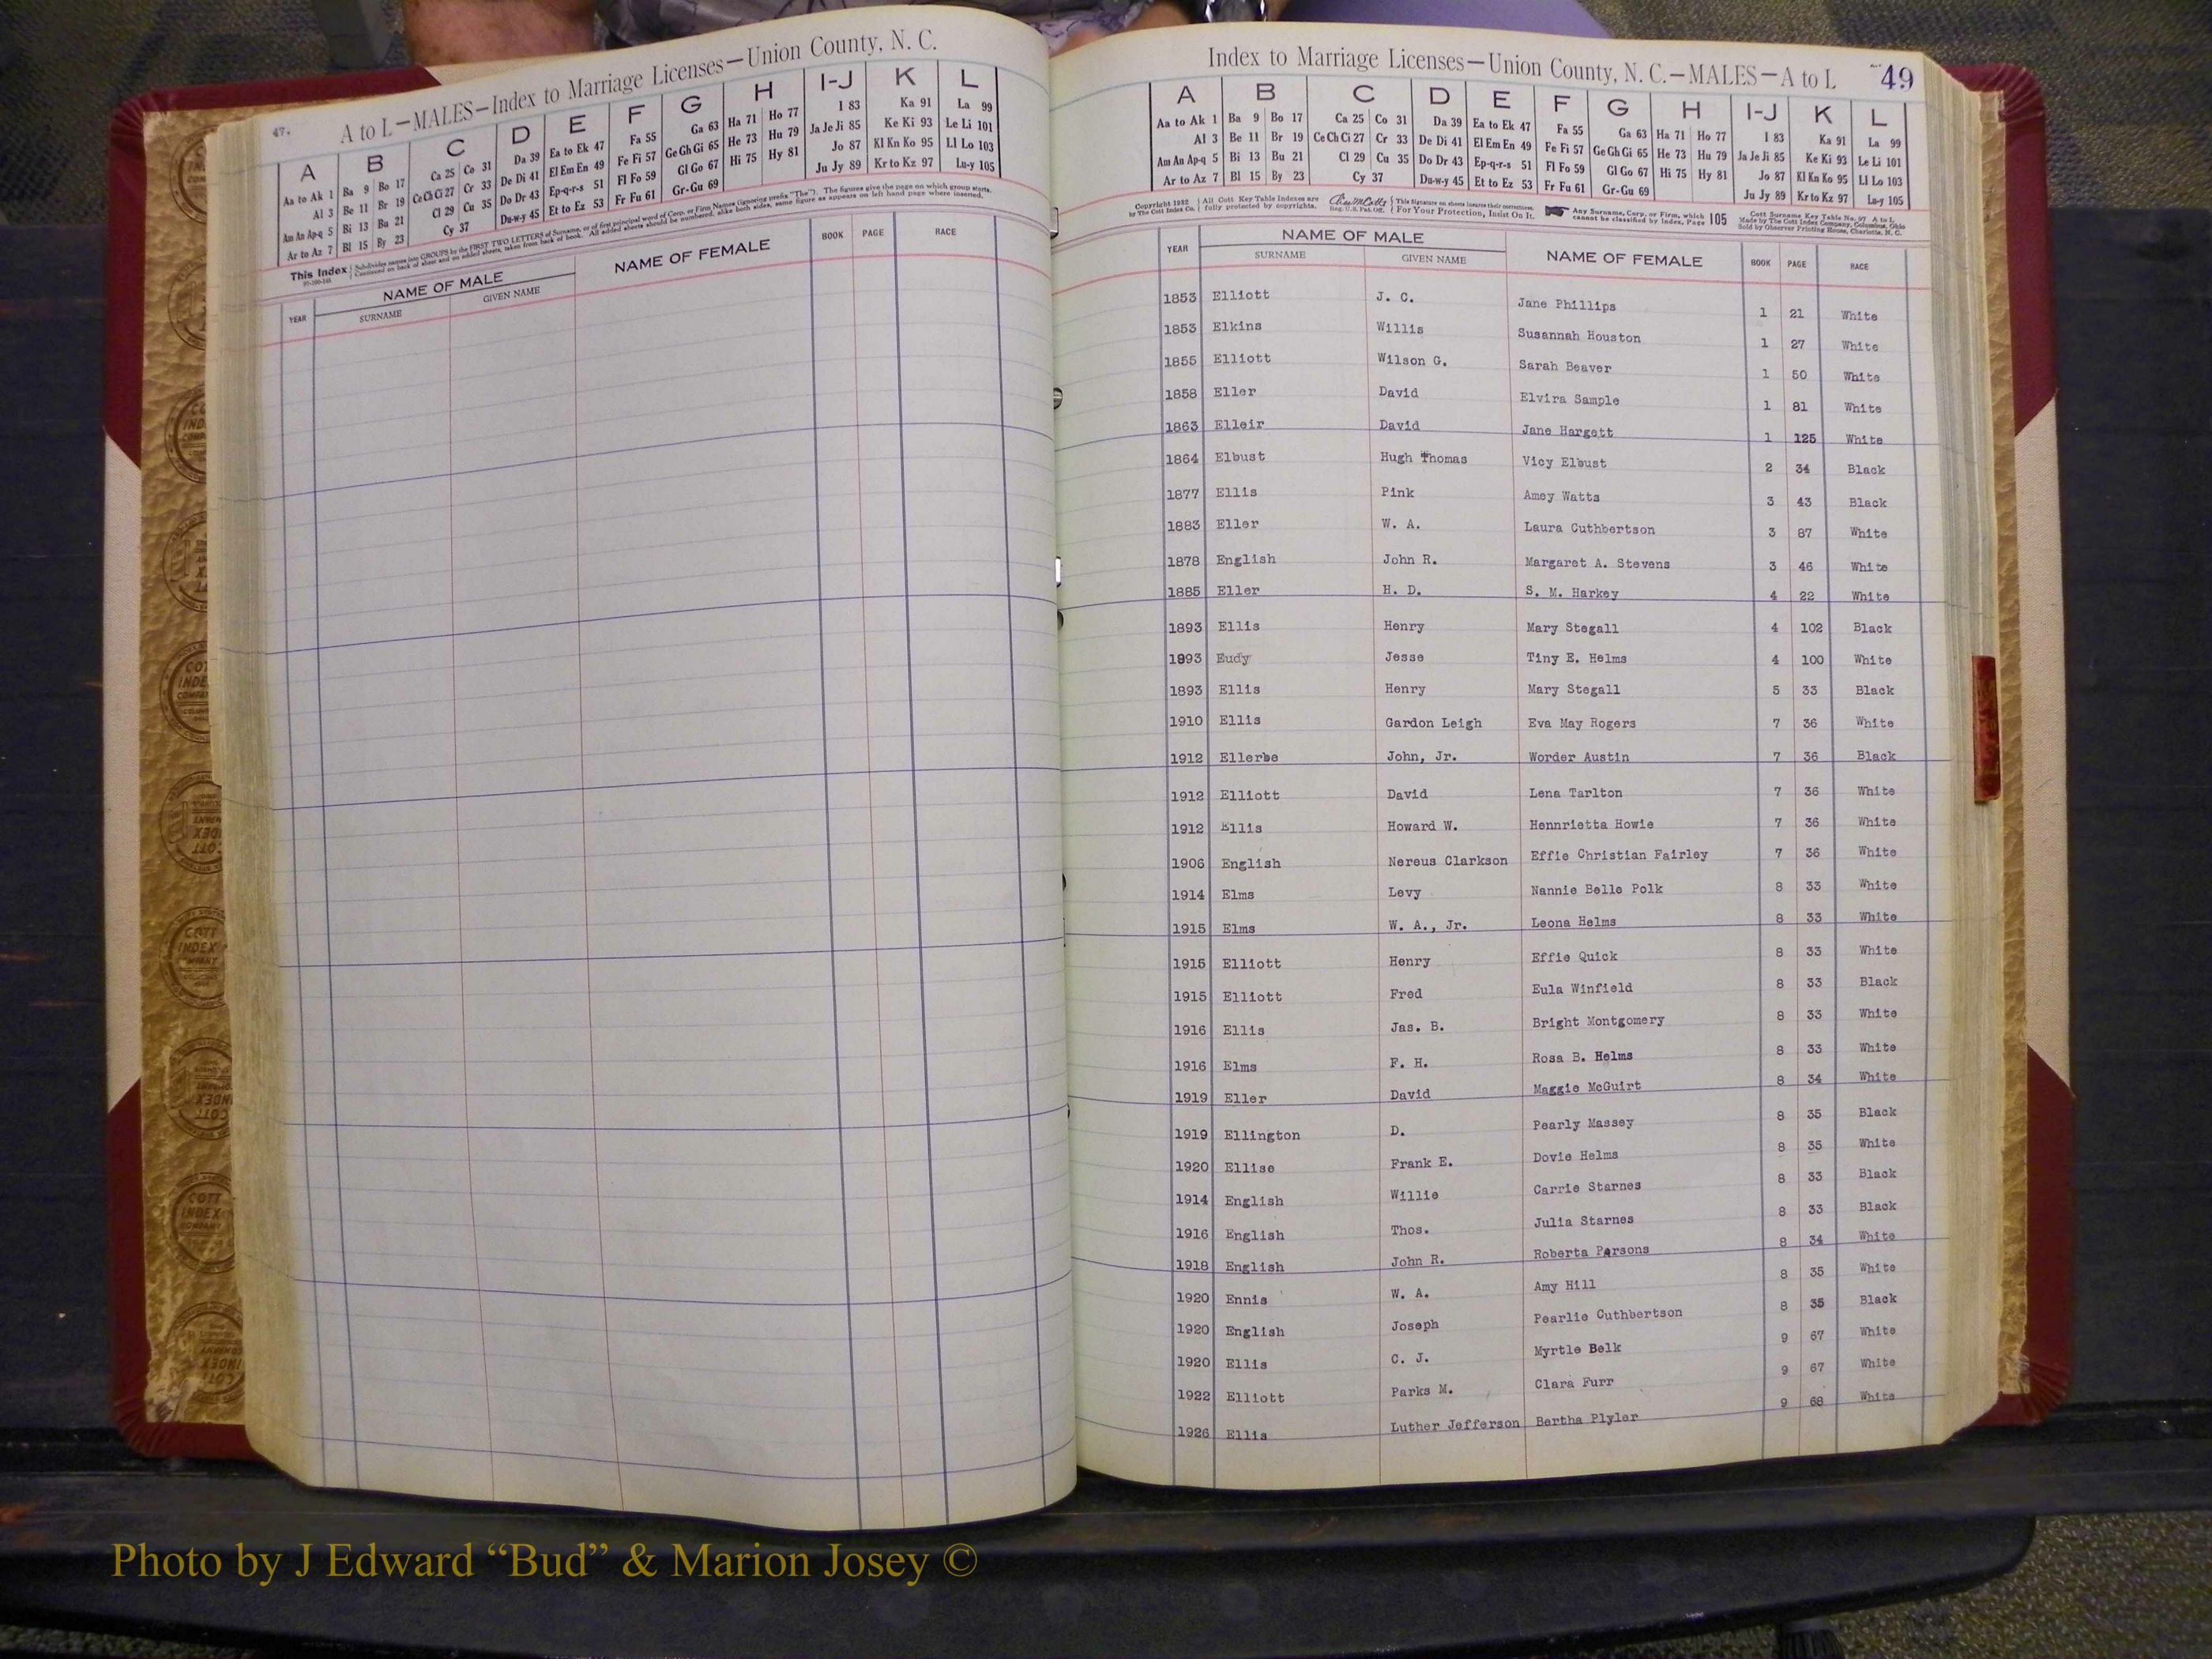 47.
A to L—MALES—Index to Marriage Licenses—Union County, N. C.
A B C D E F G H I-J K L
Aa to Ak 1 Ba 9 Bo 17 Ca 25 Co 31 Da 39 Ea to Ek 47 Fa 55 Ga 63 Ha 71 Ho 77 I 83 Ka 91 La 99
Al 3 Be 11 Br 19 Ce Ch Ci 27 Cr 33 De Di 41 El Em En 49 Fe Fi 57 Ge Gh Gi 65 He 73 Hu 79 Ja Je Ji 85 Ke Ki 93 Le Li 101
Am An Ap-q 5 Bi 13 Bu 21 Cl 29 Cu 35 Do Dr 43 Ep-q-r-s 51 Fl Fo 59 Gl Go 67 Hi 75 Hy 81 Jo 87 Kl Kn Ko 95 Ll Lo 103
Ar to Az 7 Bl 15 By 23 Cy 37 Du-w-y 45 Et to Ez 53 Fr Fu 61 Gr-Gu 69 Ju Jy 89 Kr to Kz 97 Lu-y 105
This Index Subdivides names into GROUPS by the FIRST TWO LETTERS of Surname, or of first principal word of Corp. or Firm Names (ignoring prefix "The"). The figures give the page on which group starts.
YEAR NAME OF MALE NAME OF FEMALE BOOK PAGE RACE
SURNAME GIVEN NAME
Index to Marriage Licenses—Union County, N. C.—MALES—A to L 49
A B C D E F G H I-J K L
Aa to Ak 1 Ba 9 Bo 17 Ca 25 Co 31 Da 39 Ea to Ek 47 Fa 55 Ga 63 Ha 71 Ho 77 I 83 Ka 91 La 99
Al 3 Be 11 Br 19 Ce Ch Ci 27 Cr 33 De Di 41 El Em En 49 Fe Fi 57 Ge Gh Gi 65 He 73 Hu 79 Ja Je Ji 85 Ke Ki 93 Le Li 101
Am An Ap-q 5 Bi 13 Bu 21 Cl 29 Cu 35 Do Dr 43 Ep-q-r-s 51 Fl Fo 59 Gl Go 67 Hi 75 Hy 81 Jo 87 Kl Kn Ko 95 Ll Lo 103
Ar to Az 7 Bl 15 By 23 Cy 37 Du-w-y 45 Et to Ez 53 Fr Fu 61 Gr-Gu 69 Ju Jy 89 Kr to Kz 97 Lu-y 105
Copyright 1932 All Cott Key Table Indexes are This Signature on sheets insures their correctness. Any Surname, Corp. or Firm, which Cott Surname Key Table No. 97 A to L
by The Cott Index Co. fully protected by copyrights. Reg. U.S. Pat. Off. For Your Protection, Insist On It. cannot be classified by Index, Page 105 Made by The Cott Index Company, Columbus, Ohio
Sold by Observer Printing House, Charlotte, N. C.
YEAR NAME OF MALE NAME OF FEMALE BOOK PAGE RACE
SURNAME GIVEN NAME
1853 Elliott J. C. Jane Phillips 1 21 White
1853 Elkins Willis Susannah Houston 1 27 White
1855 Elliott Wilson G. Sarah Beaver 1 50 White
1858 Eller David Elvira Sample 1 81 White
1863 Elleir David Jane Hargett 1 125 White
1864 Elbust Hugh Thomas Vicy Elbust 2 34 Black
1877 Ellis Pink Amey Watts 3 43 Black
1883 Eller W. A. Laura Cuthbertson 3 87 White
1878 English John R. Margaret A. Stevens 3 46 White
1885 Eller H. D. S. M. Harkey 4 22 White
1893 Ellis Henry Mary Stegall 4 102 Black
1893 Eudy Jesse Tiny E. Helms 4 100 White
1893 Ellis Henry Mary Stegall 5 33 Black
1910 Ellis Gardon Leigh Eva May Rogers 7 36 White
1912 Ellerbe John, Jr. Worder Austin 7 36 Black
1912 Elliott David Lena Tarlton 7 36 White
1912 Ellis Howard W. Hennrietta Howie 7 36 White
1906 English Nereus Clarkson Effie Christian Fairley 7 36 White
1914 Elms Levy Nannie Belle Polk 8 33 White
1915 Elms W. A., Jr. Leona Helms 8 33 White
1915 Elliott Henry Effie Quick 8 33 White
1915 Elliott Fred Eula Winfield 8 33 Black
1916 Ellis Jas. B. Bright Montgomery 8 33 White
1916 Elms F. H. Rosa B. Helms 8 33 White
1919 Eller David Maggie McGuirt 8 34 White
1919 Ellington D. Pearly Massey 8 35 Black
1920 Ellise Frank E. Dovie Helms 8 35 White
1914 English Willie Carrie Starnes 8 33 Black
1916 English Thos. Julia Starnes 8 33 Black
1918 English John R. Roberta Parsons 8 34 White
1920 Ennis W. A. Amy Hill 8 35 White
1920 English Joseph Pearlie Cuthbertson 8 35 Black
1920 Ellis C. J. Myrtle Belk 9 67 White
1922 Elliott Parks M. Clara Furr 9 67 White
1926 Ellis Luther Jefferson Bertha Plyler 9 68 White
Photo by J Edward “Bud” & Marion Josey ©